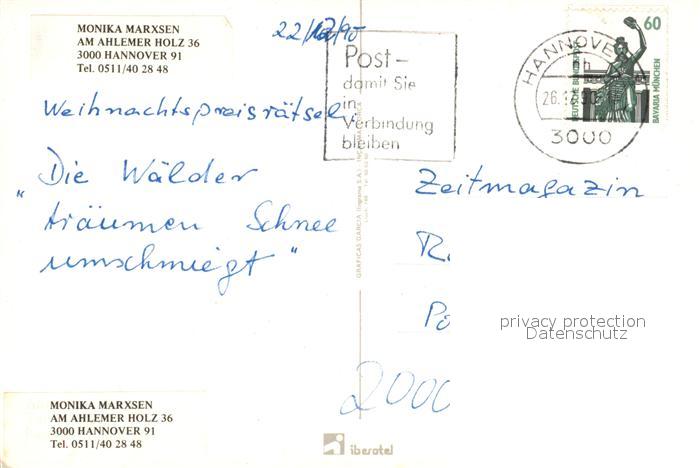 MONIKA MARXSEN
AM AHLEMER HOLZ 36
3000 HANNOVER 91
Tel. 0511/40 28 48
22/12/90
Weihnachtspreisrätsel.
Die Wälder
"träumen Schnee
umschmiegt"
MONIKA MARXSEN
AM AHLEMER HOLZ 36
3000 HANNOVER 91
Tel. 0511/40 28 48
Post-
damit Sie
in
Verbindung
bleiben
HANNOVER
h
26.12.90
3000
60
DEUTSCHE BUNDESPOST
BAVARIA MÜNCHEN
GRAFICAS GARCIA
Zeitmagazin
R.
Po
2000
privacy protection
Datenschutz
iberotel